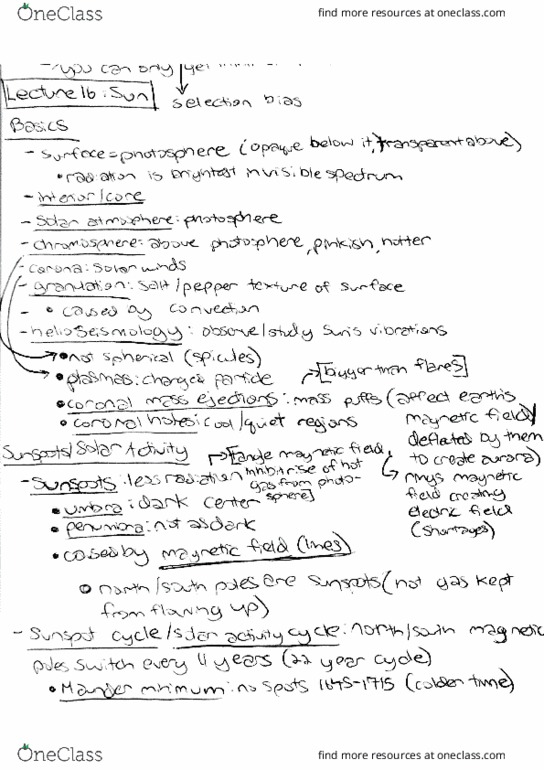 OneClass
find more resources at oneclass.com
you can only
Lecture 16: Sun
selection bias
Basics
- Surface = photosphere (opaque below it, transparent above)
• radiation is brightest in visible spectrum
- interior/core
- Solar atmosphere: photosphere
- chromosphere: above photosphere, pinkish, hotter
- corona: solar winds
- granulation: salt/pepper texture of surface
- • caused by convection
- helioseismology: observe/study Sun's vibrations
• not spherical (spicules)
• plasmas: charged particle → [bigger than flares]
• coronal mass ejections: mass puffs (affect earth's
magnetic field/
deflated by them
to create aurora)
• coronal holes: cool/quiet regions
Sunspots/Solar Activity → [large magnetic field,
inhibit rise of hot
gas from photo-
sphere]
↳ magnetic
field creating
electric field
(shortages)
- Sunspots: less radiation
• umbra: dark center
• penumbra: not as dark
• caused by magnetic field (lines)
○ north/south poles are sunspots (hot gas kept
from flowing up)
- Sunspot cycle/solar activity cycle: north/south magnetic
poles switch every 11 years (22 year cycle)
• Maunder minimum: no spots 1645-1715 (colder time)
OneClass
find more resources at oneclass.com